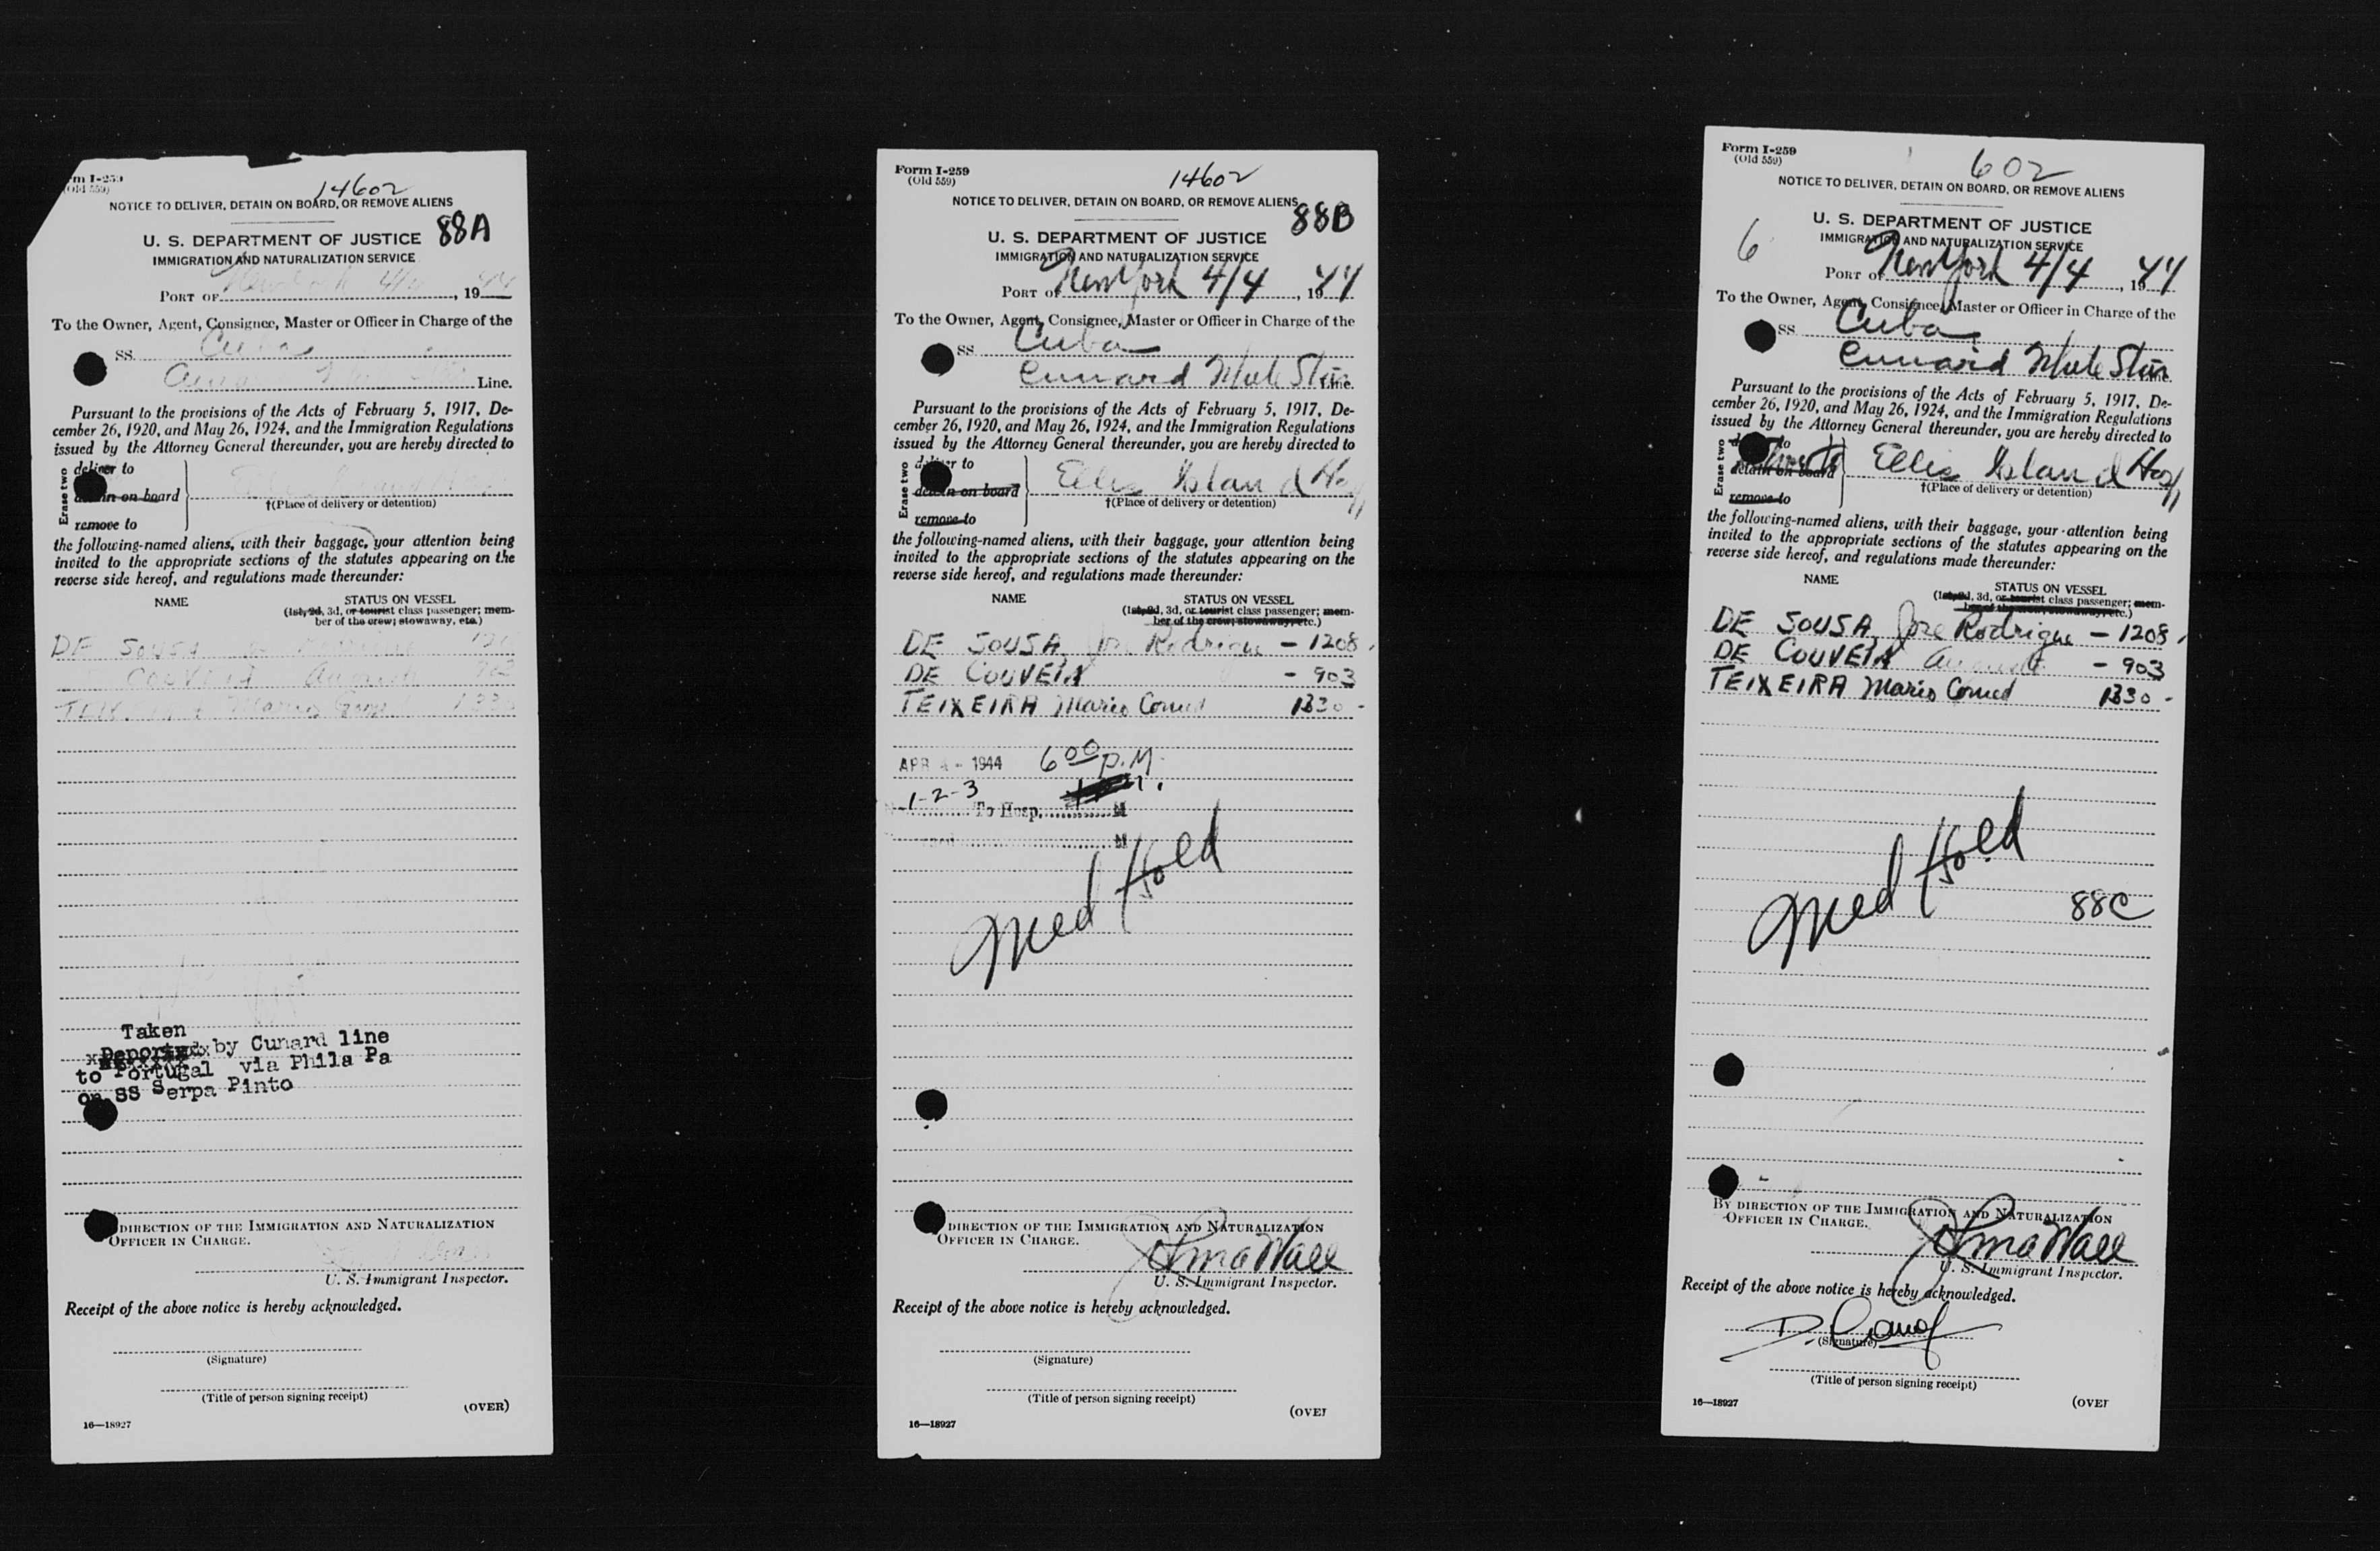 14602
NOTICE TO DELIVER, DETAIN ON BOARD, OR REMOVE ALIENS
88A
U. S. DEPARTMENT OF JUSTICE
IMMIGRATION AND NATURALIZATION SERVICE
PORT OF 19 44
To the Owner, Agent, Consignee, Master or Officer in Charge of the
SS. Cuba
Line.
Pursuant to the provisions of the Acts of February 5, 1917, De-
cember 26, 1920, and May 26, 1924, and the Immigration Regulations
issued by the Attorney General thereunder, you are hereby directed to
Erase two
deliver to
on board
remove to
†(Place of delivery or detention)
the following-named aliens, with their baggage, your attention being
invited to the appropriate sections of the statutes appearing on the
reverse side hereof, and regulations made thereunder:
NAME STATUS ON VESSEL
(1st, 2d, 3d, or tourist class passenger; mem-
ber of the crew; stowaway, etc.)
DE SOUSA
Taken
by Cunard line
to Portugal via Phila Pa
on SS Serpa Pinto
DIRECTION OF THE IMMIGRATION AND NATURALIZATION
OFFICER IN CHARGE.
U. S. Immigrant Inspector.
Receipt of the above notice is hereby acknowledged.
(Signature)
(Title of person signing receipt)
(OVER)
16—18927
Form I-259
(Old 559)
14602
NOTICE TO DELIVER, DETAIN ON BOARD, OR REMOVE ALIENS
88B
U. S. DEPARTMENT OF JUSTICE
IMMIGRATION AND NATURALIZATION SERVICE
PORT OF New York 4/4, 1944
To the Owner, Agent, Consignee, Master or Officer in Charge of the
SS. Cuba
Cunard White Star
Pursuant to the provisions of the Acts of February 5, 1917, De-
cember 26, 1920, and May 26, 1924, and the Immigration Regulations
issued by the Attorney General thereunder, you are hereby directed to
Erase two
to
detain on board
remove to
Ellis Island Hosp
†(Place of delivery or detention)
the following-named aliens, with their baggage, your attention being
invited to the appropriate sections of the statutes appearing on the
reverse side hereof, and regulations made thereunder:
NAME STATUS ON VESSEL
(1st, 2d, 3d, or tourist class passenger; mem-
ber of the crew; stowaway, etc.)
DE SOUSA Rodrigue - 1208
DE COUVEIA - 903
TEIXEIRA Mario 1330 -
APR 4 - 1944 6 00 P.M.
1-2-3
To Hosp. M
M
Med Hold
DIRECTION OF THE IMMIGRATION AND NATURALIZATION
OFFICER IN CHARGE.
U. S. Immigrant Inspector.
Receipt of the above notice is hereby acknowledged.
(Signature)
(Title of person signing receipt)
(OVER
16—18927
Form I-259
(Old 559)
602
NOTICE TO DELIVER, DETAIN ON BOARD, OR REMOVE ALIENS
6
U. S. DEPARTMENT OF JUSTICE
IMMIGRATION AND NATURALIZATION SERVICE
PORT OF New York 4/4, 1944
To the Owner, Agent, Consignee, Master or Officer in Charge of the
SS. Cuba
Cunard White Star
Pursuant to the provisions of the Acts of February 5, 1917, De-
cember 26, 1920, and May 26, 1924, and the Immigration Regulations
issued by the Attorney General thereunder, you are hereby directed to
Erase two
to
detain on board
remove to
Ellis Island Hosp
†(Place of delivery or detention)
the following-named aliens, with their baggage, your attention being
invited to the appropriate sections of the statutes appearing on the
reverse side hereof, and regulations made thereunder:
NAME STATUS ON VESSEL
(1st, 2d, 3d, or tourist class passenger; mem-
ber of the crew; stowaway, etc.)
DE SOUSA Jose Rodrigue - 1208
DE COUVEIA - 903
TEIXEIRA Mario 1330 -
Med Hold
88C
BY DIRECTION OF THE IMMIGRATION AND NATURALIZATION
OFFICER IN CHARGE.
U. S. Immigrant Inspector.
Receipt of the above notice is hereby acknowledged.
(Signature)
(Title of person signing receipt)
(OVER
16—18927